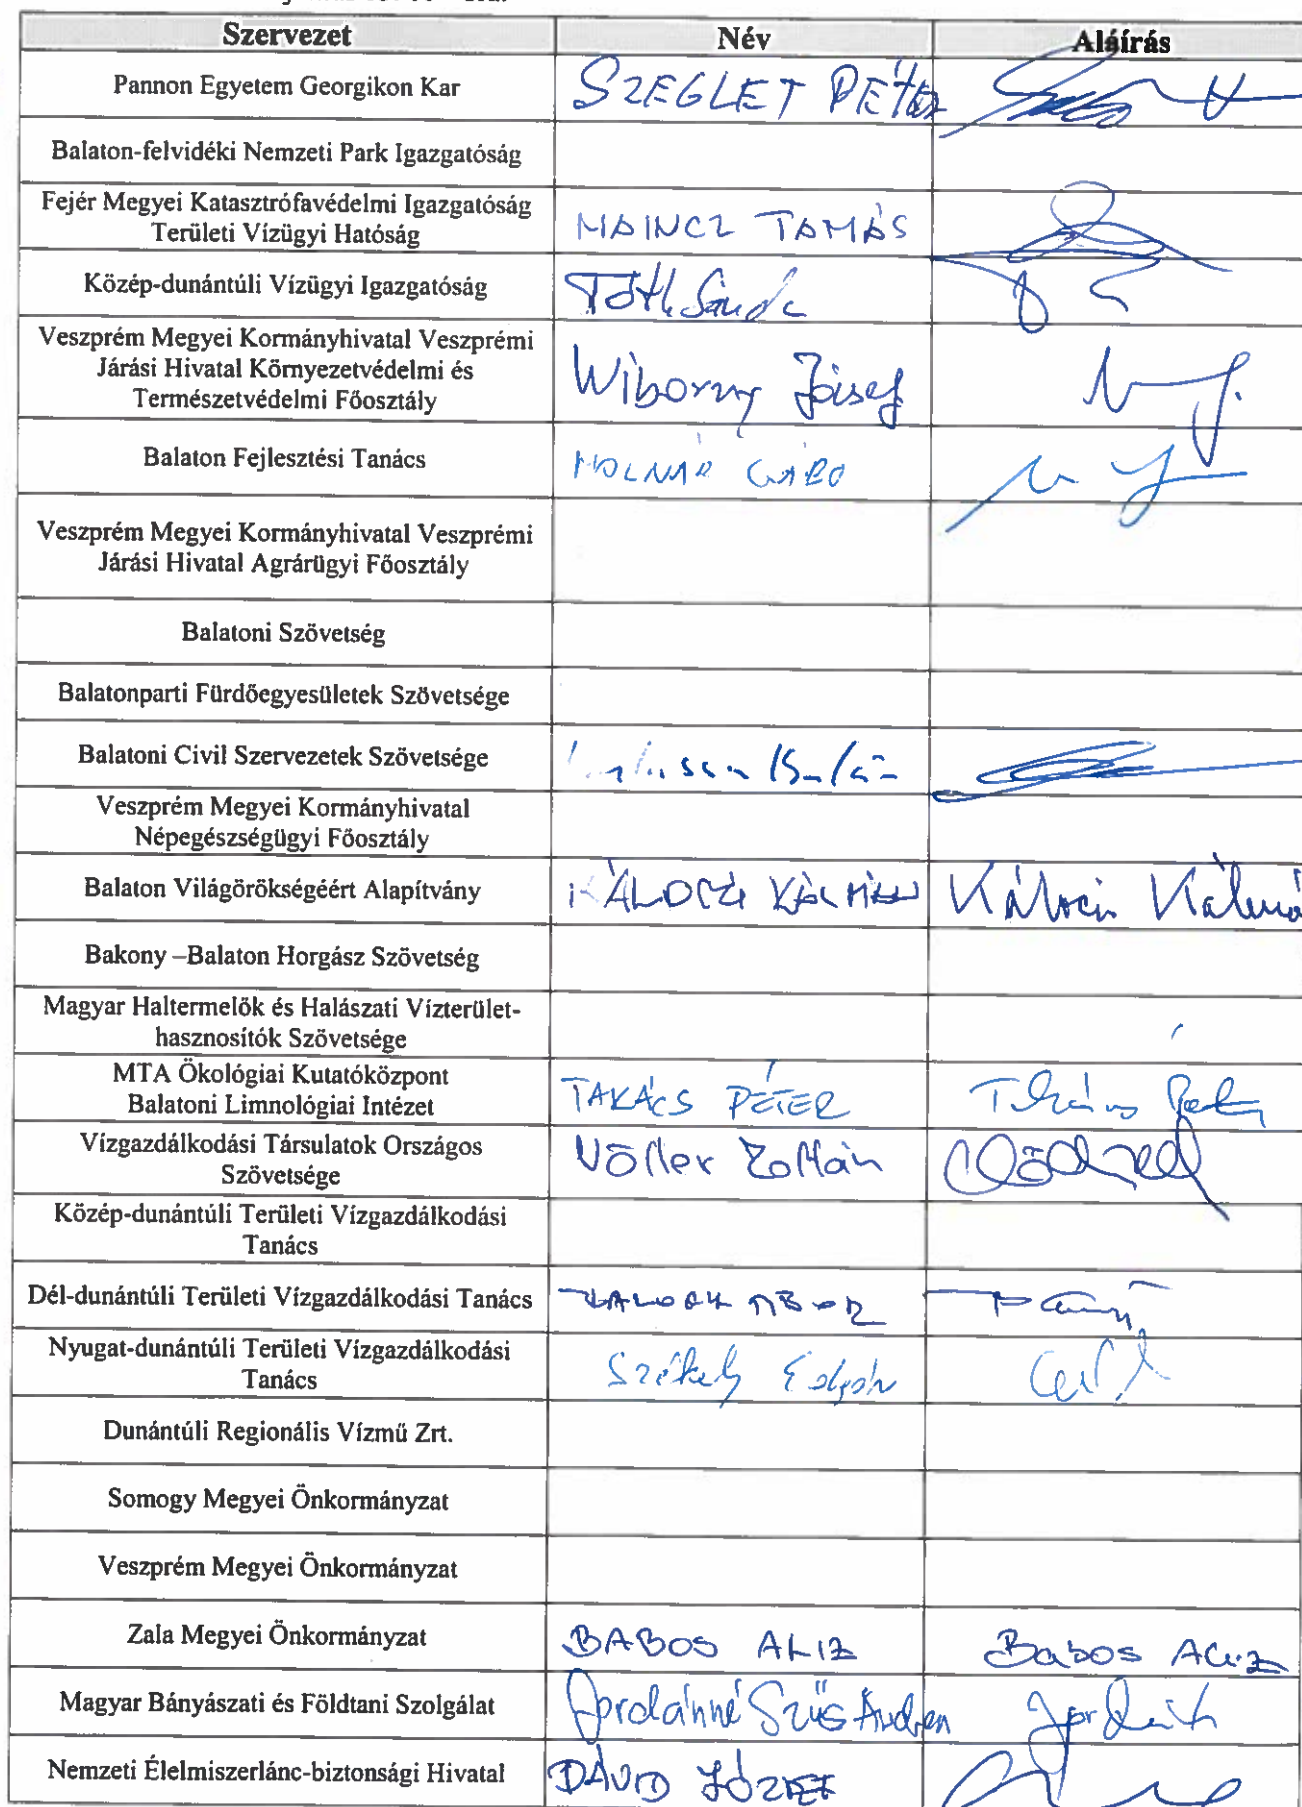 Szervezet Név Aláírás
Pannon Egyetem Georgikon Kar SZEGLET PÉTER
Balaton-felvidéki Nemzeti Park Igazgatóság
Fejér Megyei Katasztrófavédelmi Igazgatóság
Területi Vízügyi Hatóság MAINCZ TAMÁS
Közép-dunántúli Vízügyi Igazgatóság Tóth Sándor
Veszprém Megyei Kormányhivatal Veszprémi
Járási Hivatal Környezetvédelmi és
Természetvédelmi Főosztály Wiborny József
Balaton Fejlesztési Tanács MOLNÁR GÁBOR
Veszprém Megyei Kormányhivatal Veszprémi
Járási Hivatal Agrárügyi Főosztály
Balatoni Szövetség
Balatonparti Fürdőegyesületek Szövetsége
Balatoni Civil Szervezetek Szövetsége
Veszprém Megyei Kormányhivatal
Népegészségügyi Főosztály
Balaton Világörökségéért Alapítvány KÁLÓCZI KÁLMÁN Kálóczi Kálmá
Bakony –Balaton Horgász Szövetség
Magyar Haltermelők és Halászati Vízterület-
hasznosítók Szövetsége
MTA Ökológiai Kutatóközpont
Balatoni Limnológiai Intézet TAKÁCS PÉTER Takács Péter
Vízgazdálkodási Társulatok Országos
Szövetsége Völler Zoltán
Közép-dunántúli Területi Vízgazdálkodási
Tanács
Dél-dunántúli Területi Vízgazdálkodási Tanács
Nyugat-dunántúli Területi Vízgazdálkodási
Tanács Székely Edgár
Dunántúli Regionális Vízmű Zrt.
Somogy Megyei Önkormányzat
Veszprém Megyei Önkormányzat
Zala Megyei Önkormányzat BABOS ALIZ Babos Aliz
Magyar Bányászati és Földtani Szolgálat Jordánné Szűs Andrea
Nemzeti Élelmiszerlánc-biztonsági Hivatal DÁVID JÓZSEF